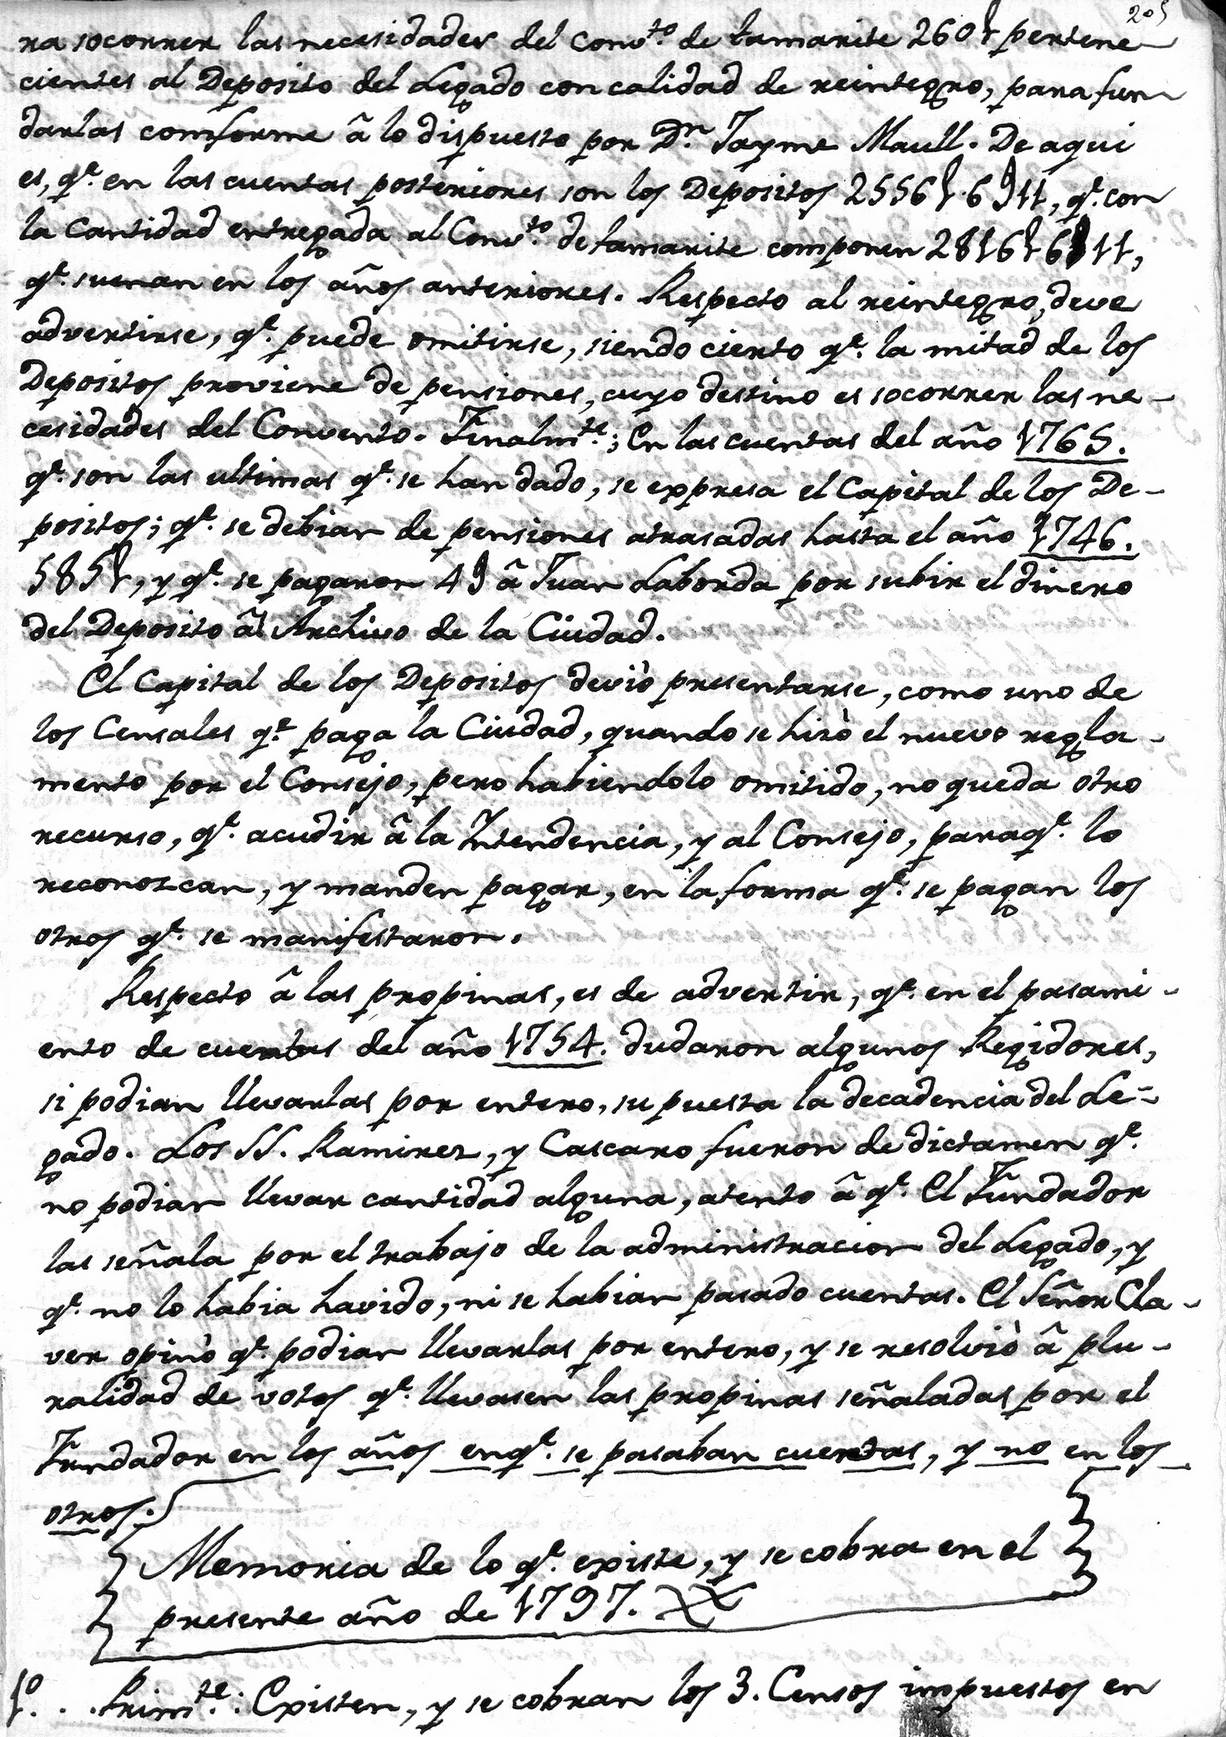 205
ra socorrer las necesidades del Conv.to de tamarite 260 L pertene-
cientes al Deposito del Legado con calidad de reintegro, para fun-
darlas comforme â lo dispuesto por D.n Jayme Maull. De aqui
es, q.e en las cuentas posteriores son los Depositos 2556 L 6 S 11, q.e con
la Cantidad entregada al Conv.to de tamarite componen 2816 L 6 S 11,
q.e suenan en los años anteriores. Respecto al reintegro, deve
advertirse, q.e puede omitirse, siendo cierto q.e la mitad de los
Depositos proviene de pensiones, cuyo destino es socorrer las ne-
cesidades del Convento. Finalm.te; En las cuentas del año 1765.
q.e son las ultimas q.e se han dado, se expresa el Capital de los De-
positos; q.e se debian de pensiones atrasadas hasta el año 1746.
585 L, y q.e se pagaron 4 S â Juan Laborda por subir el dinero
del Deposito âl Archivo de la Ciudad.
El Capital de los Depositos deviò presentarse, como uno de
los Censales q.e paga la Ciudad, quando se hizò el nuevo regla-
mento por el Consejo, pero habiendolo omitido, no queda otro
recurso, q.e acudir â la Intendencia, y al Consejo, paraq.e lo
reconozcan, y manden pagar, en la forma q.e se pagan los
otros q.e se manifestaron.
Respecto â las propinas, es de advertir, q.e en el pasami-
ento de cuentas del año 1754. dudaron algunos Regidores,
si podian llevarlas por entero, supuesta la decadencia del Le=
gado. Los SS. Ramirez, y Cascaro fueron de dictamen q.e
no podian llevar cantidad alguna, atento â q.e El Fundador
las señala por el trabajo de la administracion del Legado, y
q.e no lo habia havido, ni se habian pasado cuentas. El Señor Cla-
ver opinò q.e podian llevarlas por entero, y se resolviò â plu-
ralidad de votos q.e llevasen las propinas señaladas por el
Fundador en los años enq.e se pasaban cuentas, y no en los
otros.
Memoria de lo q.e existe, y se cobra en el
presente año de 1797.
1.o . . Prim.te: Existen, y se cobran los 3. Censos impuestos en